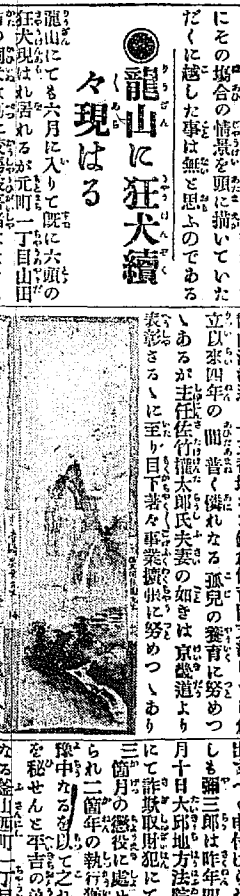 にその場合の情景を頭に描いていた
だくに越した事は無と思ふのである
◉龍山に狂犬續
々現はる
龍山にても六月に入りて既に六頭の
狂犬現はれ居れるが元町一丁目山田
立以來四年の間普く憐れなる孤兒の養育に努めつ
ゝあるが主任佐竹權太郎氏夫妻の如きは京畿道より
表彰さるゝに至り目下著々事業擴張に努めつゝあり
しも彌三郎は昨年四
月十日大邱地方法院
にて詐欺取財犯にて
三箇月の懲役に處せ
られ二箇年の執行猶
豫中なるを以て之れ
を秘せんと平吉の
なる釜山西町一丁目